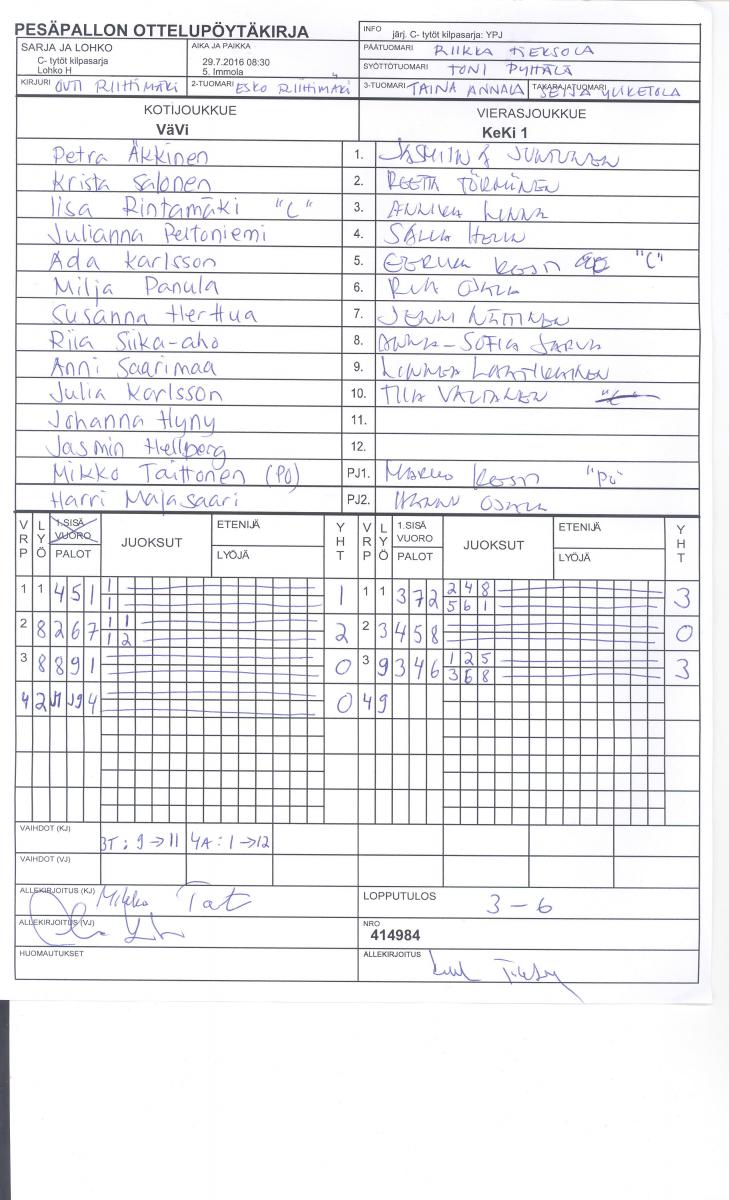 PESÄPALLON OTTELUPÖYTÄKIRJA
INFO järj. C- tytöt kilpasarja: YPJ
SARJA JA LOHKO
C- tytöt kilpasarja
Lohko H
AIKA JA PAIKKA
29.7.2016 08:30
5. Immola
PÄÄTUOMARI RIIKKA
SYÖTTÖTUOMARI TONI PYHÄLÄ
KIRJURI OUTI RIIHIMÄKI 2-TUOMARI ESKO RIIHIMÄKI 3-TUOMARI TAINA ANNALA TAKARAJATUOMARI SEIJA YLIKETOLA
KOTIJOUKKUE VIERASJOUKKUE
VäVi KeKi 1
Petra Äkkinen 1. JUNTUNEN
Krista Salonen 2. REETTA TÖRMÄNEN
Iisa Rintamäki "C" 3. ANNIKA LINNA
Julianna Peltoniemi 4. SALLA
Ada Karlsson 5. EERIKA KOSTI "C"
Milja Panula 6. OJALA
Susanna Herttua 7. JENNI
Riia Siika-aho 8. ANNA-SOFIA
Anni Saarimaa 9. LINNEA LAATIKAINEN
Julia Karlsson 10. TIIA VALTANEN "C"
Johanna Hyny 11.
Jasmin Hellberg 12.
Mikko Taittonen (PO) PJ1. MARKO KOSTI "PJ"
Harri Majasaari PJ2. OJALA
VRP LYÖ 1.SISÄ VUORO PALOT JUOKSUT ETENIJÄ LYÖJÄ YHT VRP LYÖ 1.SISÄ VUORO PALOT JUOKSUT ETENIJÄ LYÖJÄ YHT
1 1 4 5 1 1 1 1 1 3 7 2 2 4 8 3
1 5 6 1
2 8 2 6 7 1 1 2 2 3 4 5 8 0
1 2
3 8 8 9 1 0 3 9 3 4 6 1 2 5 3
3 6 8
4 2 9 4 0 4 9
VAIHDOT (KJ) 3T: 9→11 4A: 1→12
VAIHDOT (VJ)
ALLEKIRJOITUS (KJ) Mikko Tat LOPPUTULOS 3-6
ALLEKIRJOITUS (VJ) NRO
414984
HUOMAUTUKSET ALLEKIRJOITUS